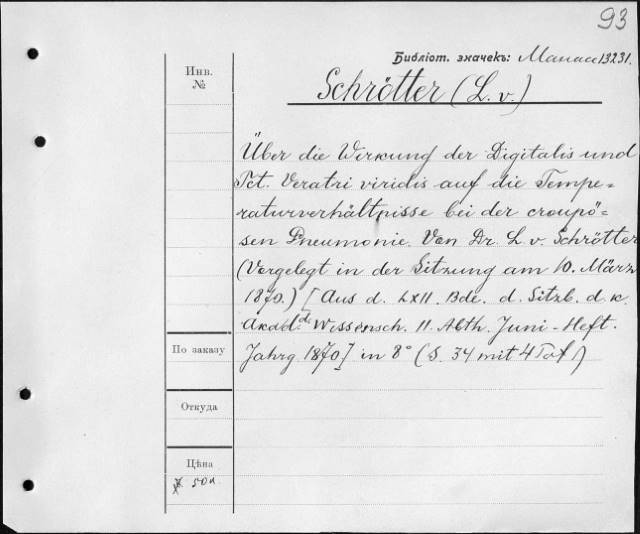 93
Библіот. значекъ: Манас 13231.
Инв.
№
Schrötter (L. v.)
Über die Wirkung der Digitalis und
Tct. Veratri viridis auf die Tempe=
raturverhältnisse bei der croupö=
sen Pneumonie. Von Dr. L. v. Schrötter
(Vorgelegt in der Sitzung am 10. März
1870.) [Aus d. LXII. Bde. d. Sitzb. d. k.
Akad. d. Wissensch. II. Abth. Juni-Heft.
Jahrg. 1870] in 8° (S. 34 mit 4 Taf.)
По заказу
Откуда
Цѣна
50